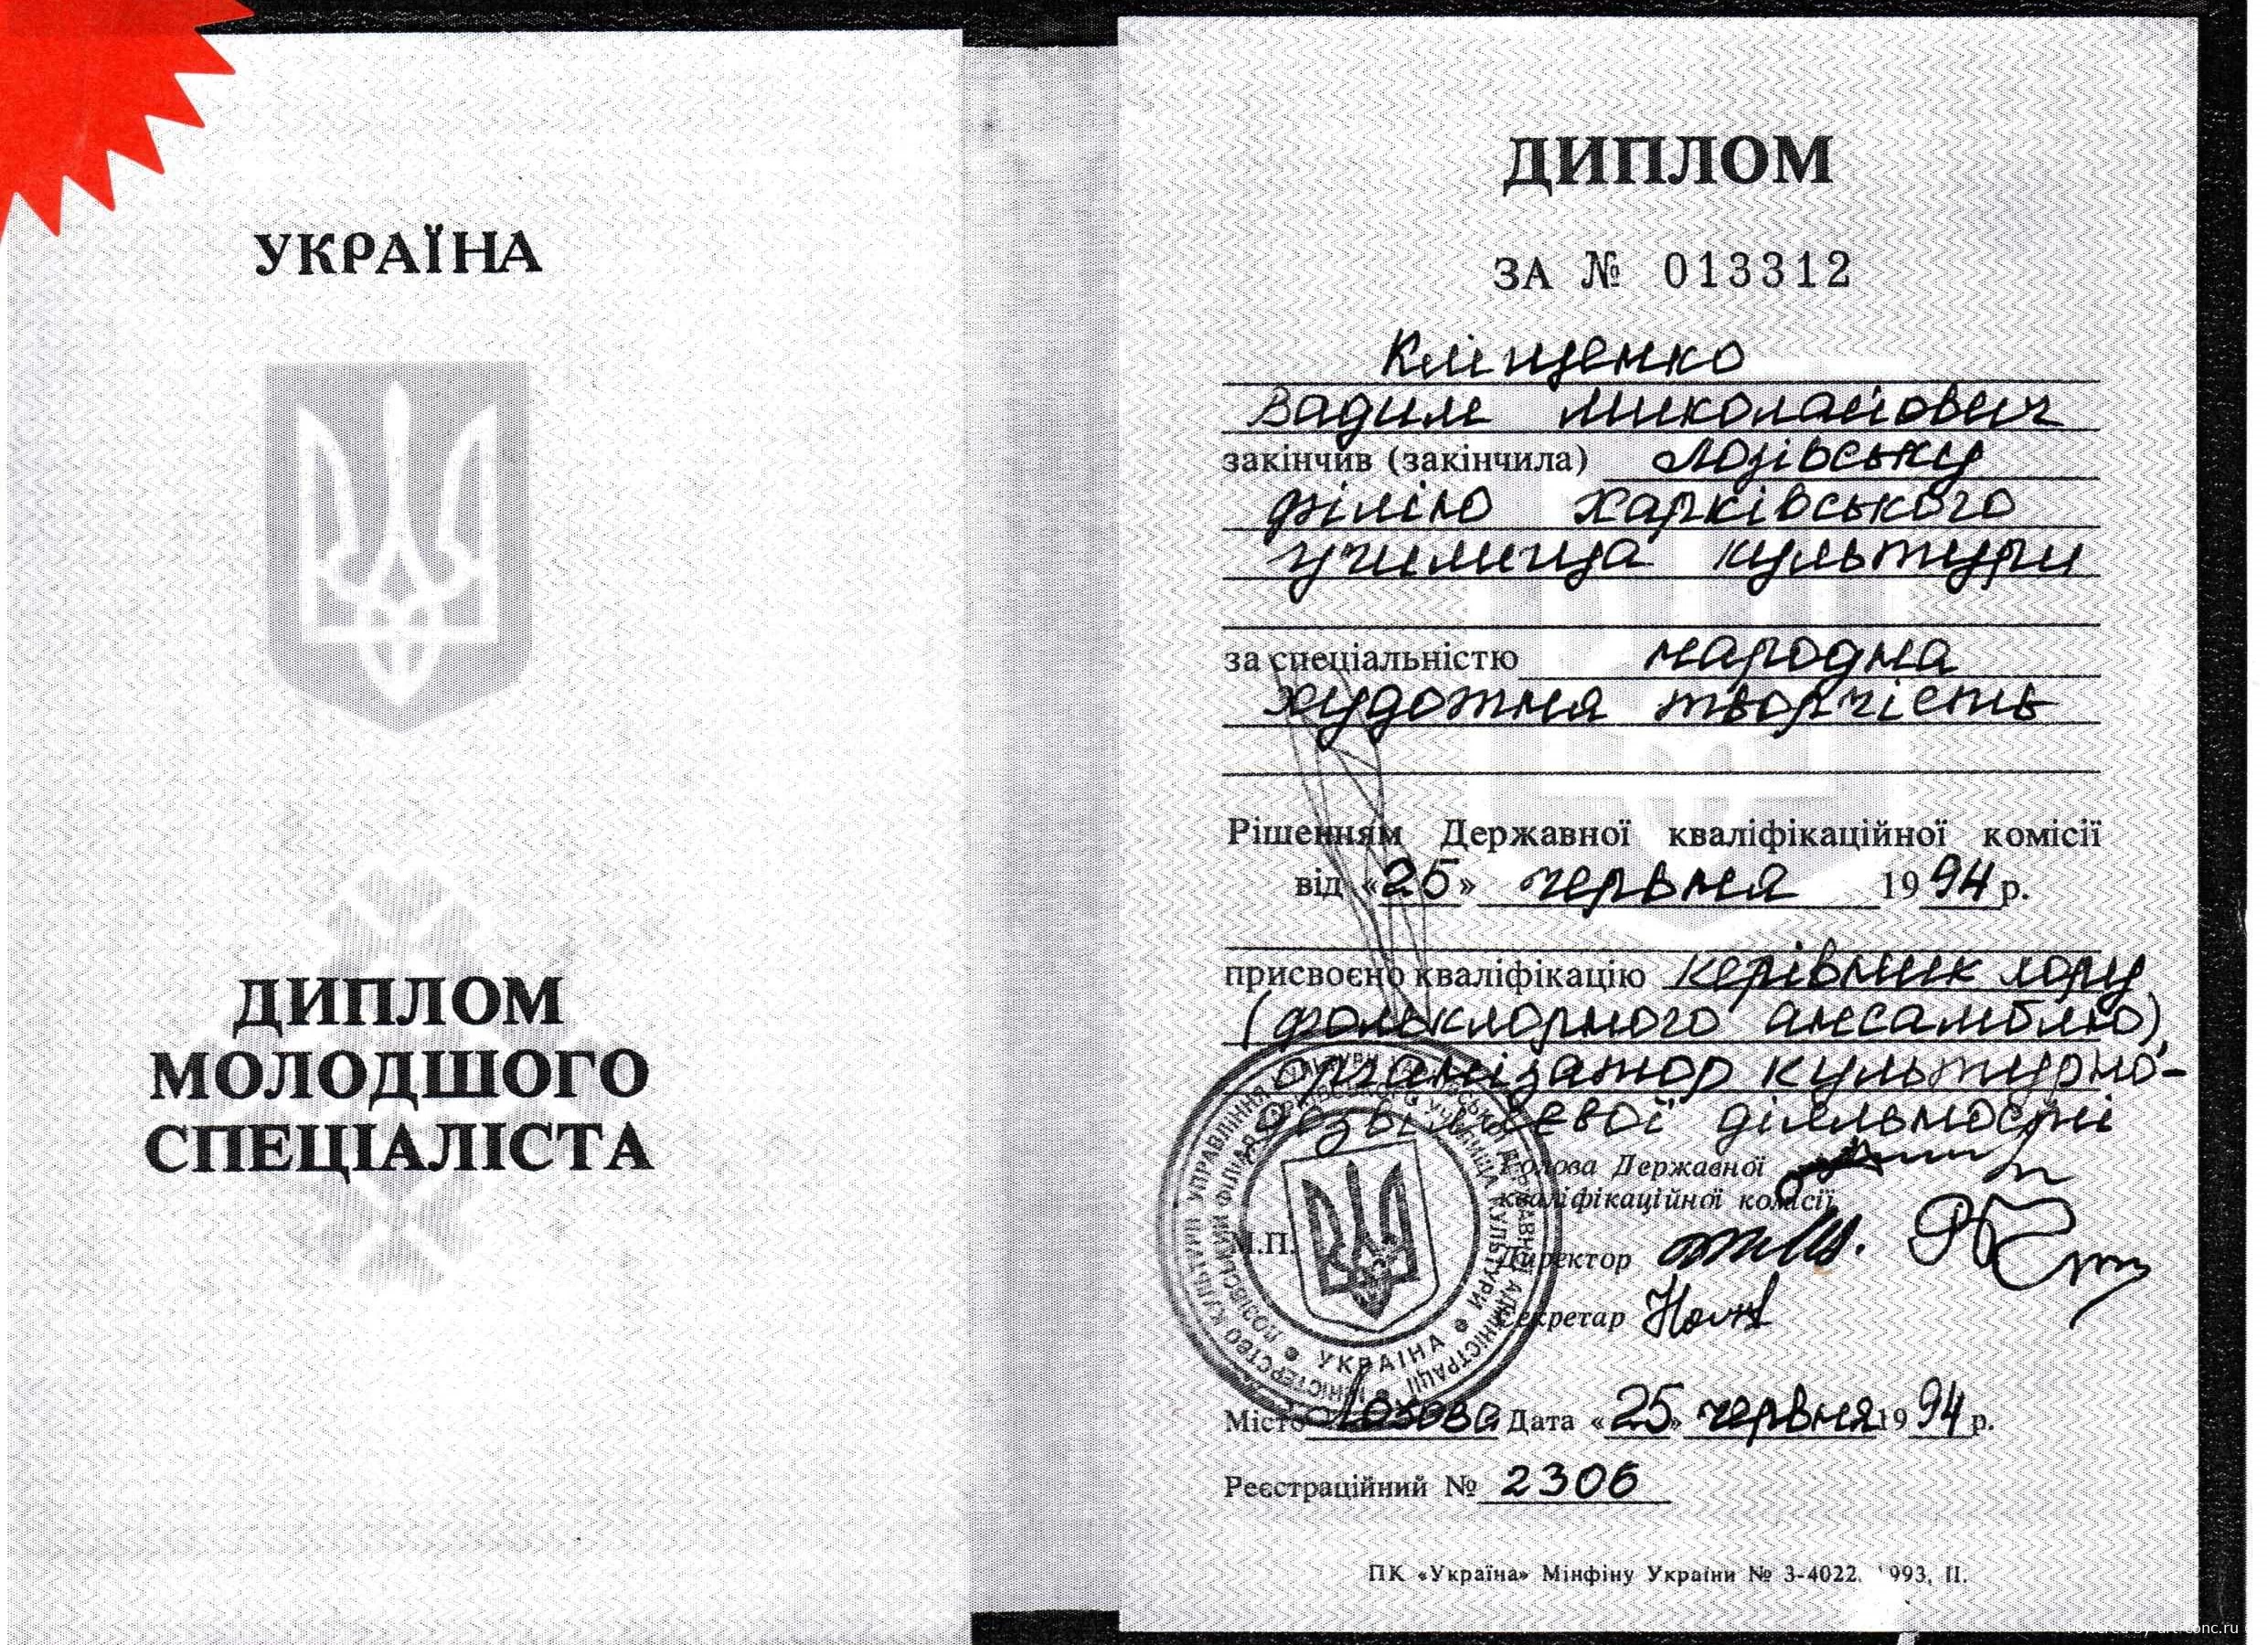 УКРАЇНА
ДИПЛОМ
МОЛОДШОГО
СПЕЦІАЛІСТА
ДИПЛОМ
ЗА № 013312
Кліщенко
Вадим Миколайович
закінчив (закінчила) Лозівську
філію Харківського
училища культури
за спеціальністю народна
художня творчість
Рішенням Державної кваліфікаційної комісії
від «25» червня 1994 р.
присвоєно кваліфікацію керівник хору
(фольклорного ансамблю),
організатор культурно-
дозвіллєвої діяльності
Голова Державної
кваліфікаційної комісії
М.П.
Директор
Секретар
УКРАЇНА
Місто Лозова Дата «25» червня 1994 р.
Реєстраційний № 2306
ПК «Україна» Мінфіну України № 3-4022. 1993, II.
Powered by art-conc.ru